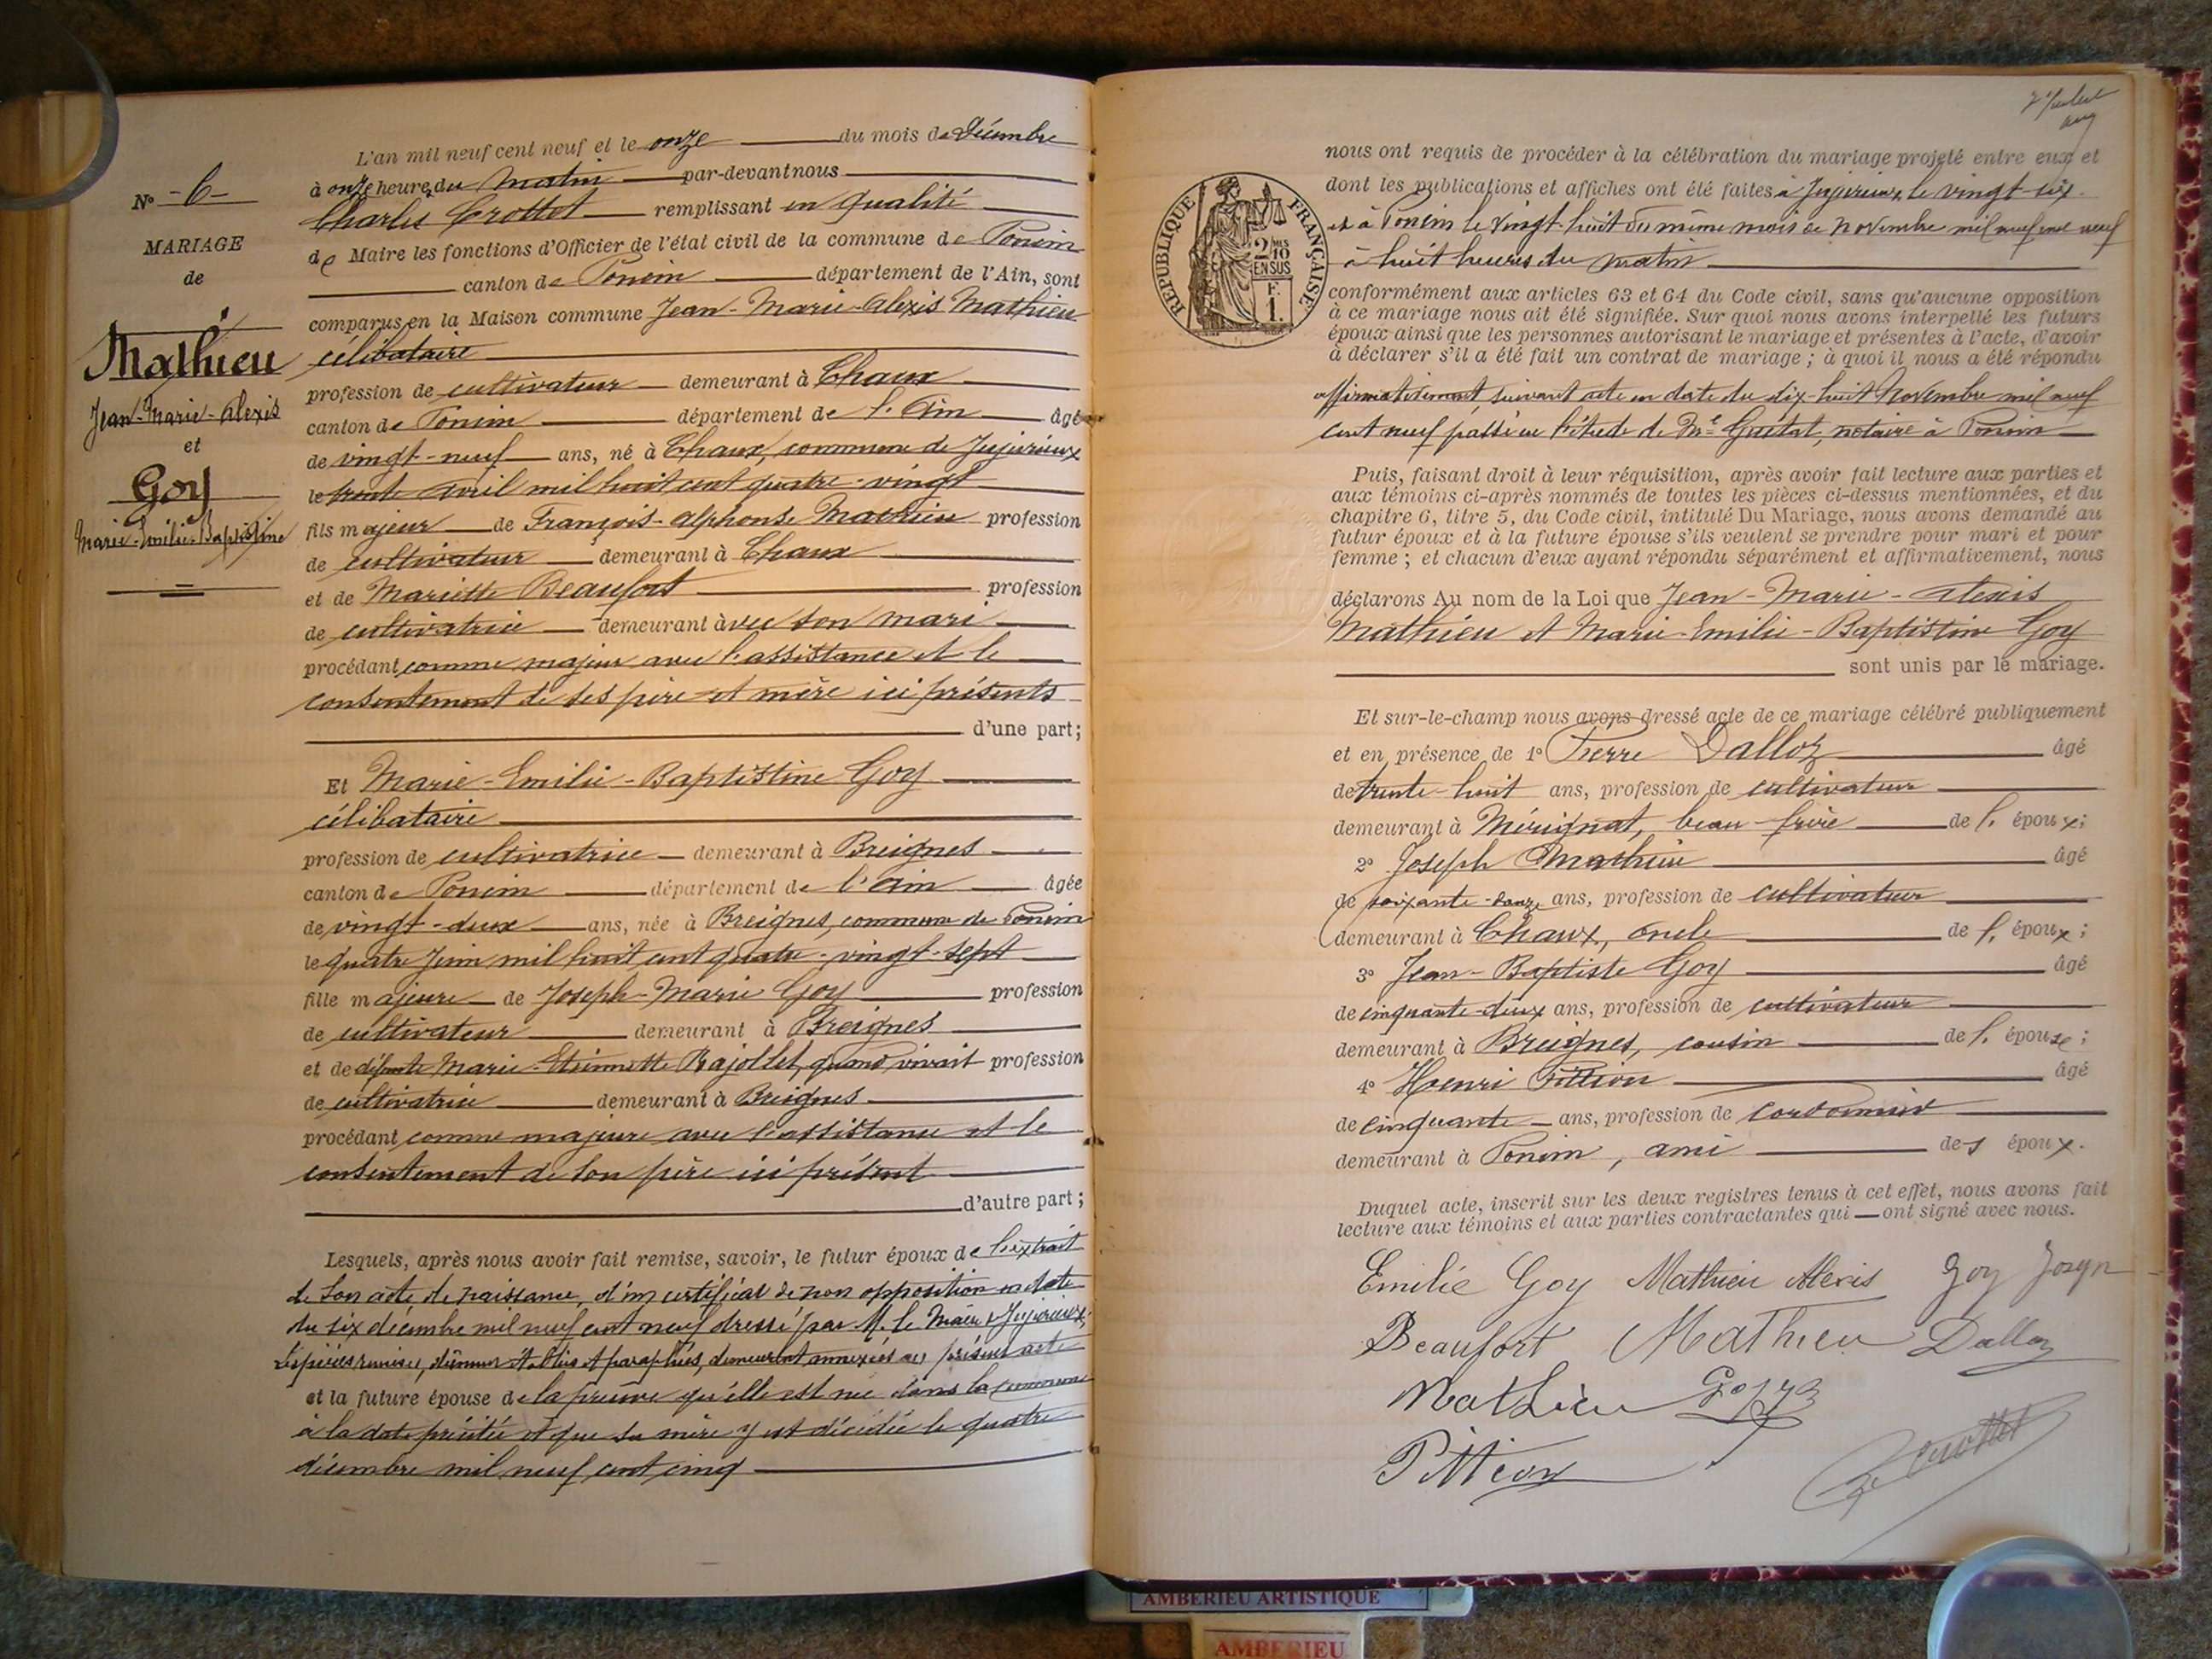 N° -6-
MARIAGE
de
Mathieu
Jean-Marie-Alexis
et
Goy
Marie-Emilie-Baptistine
L'an mil neuf cent neuf et le onze du mois de Décembre
à onze heures du matin par-devant nous
Charles Crottet remplissant en qualité
de Maire les fonctions d'Officier de l'état civil de la commune de Poncin
canton de Poncin département de l'Ain, sont
comparus en la Maison commune Jean-Marie-Alexis Mathieu
célibataire
profession de cultivateur demeurant à Chaux
canton de Poncin département de l'Ain âgé
de vingt-neuf ans, né à Chaux, commune de Jujurieux
le trente avril mil huit cent quatre-vingt
fils majeur de François-Alphonse Mathieu profession
de cultivateur demeurant à Chaux
et de Mariette Beaufort profession
de cultivatrice demeurant avec son mari
procédant comme majeur avec l'assistance et le
consentement de ses père et mère ici présents
d'une part;
Et Marie-Emilie-Baptistine Goy
célibataire
profession de cultivatrice demeurant à Breignes
canton de Poncin département de l'Ain âgée
de vingt-deux ans, née à Breignes, commune de Poncin
le quatre Juin mil huit cent quatre-vingt-sept
fille majeure de Joseph-Marie Goy profession
de cultivateur demeurant à Breignes
et de défunte Marie-Etiennette Rajollet, quand vivait profession
de cultivatrice demeurant à Breignes
procédant comme majeure avec l'assistance et le
consentement de son père ici présent
d'autre part;
Lesquels, après nous avoir fait remise, savoir, le futur époux de l'extrait
de son acte de naissance, d'un certificat de non opposition en date
du six décembre mil neuf cent neuf dressé par M. le Maire de Jujurieux;
Les pièces remises, dûment et paraphées, demeurent annexées au présent acte
et la future épouse de la preuve qu'elle est née dans la commune
à la date précitée et que sa mère y est décédée le quatre
décembre mil neuf cent cinq
nous ont requis de procéder à la célébration du mariage projeté entre eux et
dont les publications et affiches ont été faites à Jujurieux le vingt-six
et à Poncin le vingt-huit du même mois de Novembre mil neuf cent neuf
à huit heures du matin
RÉPUBLIQUE FRANÇAISE
2/10 MES
EN SUS
F.
1.
conformément aux articles 63 et 64 du Code civil, sans qu'aucune opposition
à ce mariage nous ait été signifiée. Sur quoi nous avons interpellé les futurs
époux ainsi que les personnes autorisant le mariage et présentes à l'acte, d'avoir
à déclarer s'il a été fait un contrat de mariage; à quoi il nous a été répondu
affirmativement, suivant acte en date du dix-huit Novembre mil neuf
cent neuf passé en l'étude de Me Guitat, notaire à Poncin
Puis, faisant droit à leur réquisition, après avoir fait lecture aux parties et
aux témoins ci-après nommés de toutes les pièces ci-dessus mentionnées, et du
chapitre 6, titre 5, du Code civil, intitulé Du Mariage, nous avons demandé au
futur époux et à la future épouse s'ils veulent se prendre pour mari et pour
femme; et chacun d'eux ayant répondu séparément et affirmativement, nous
déclarons Au nom de la Loi que Jean-Marie-Alexis
Mathieu et Marie-Emilie-Baptistine Goy
sont unis par le mariage.
Et sur-le-champ nous avons dressé acte de ce mariage célébré publiquement
et en présence de 1° Pierre Dalloz âgé
de trente-huit ans, profession de cultivateur
demeurant à Mérignat, beau-frère de l'époux;
2° Joseph Mathieu âgé
de soixante-douze ans, profession de cultivateur
demeurant à Chaux, oncle de l'époux;
3° Jean-Baptiste Goy âgé
de cinquante-deux ans, profession de cultivateur
demeurant à Breignes, cousin de l'épouse;
4° Henri Pittion âgé
de cinquante ans, profession de cordonnier
demeurant à Poncin, ami des époux.
Duquel acte, inscrit sur les deux registres tenus à cet effet, nous avons fait
lecture aux témoins et aux parties contractantes qui ont signé avec nous.
Emilie Goy Mathieu Alexis Goy Joseph
Beaufort Mathieu Dalloz
Mathieu Goy
Pittion Crottet
AMBERIEU ARTISTIQUE
AMBERIEU